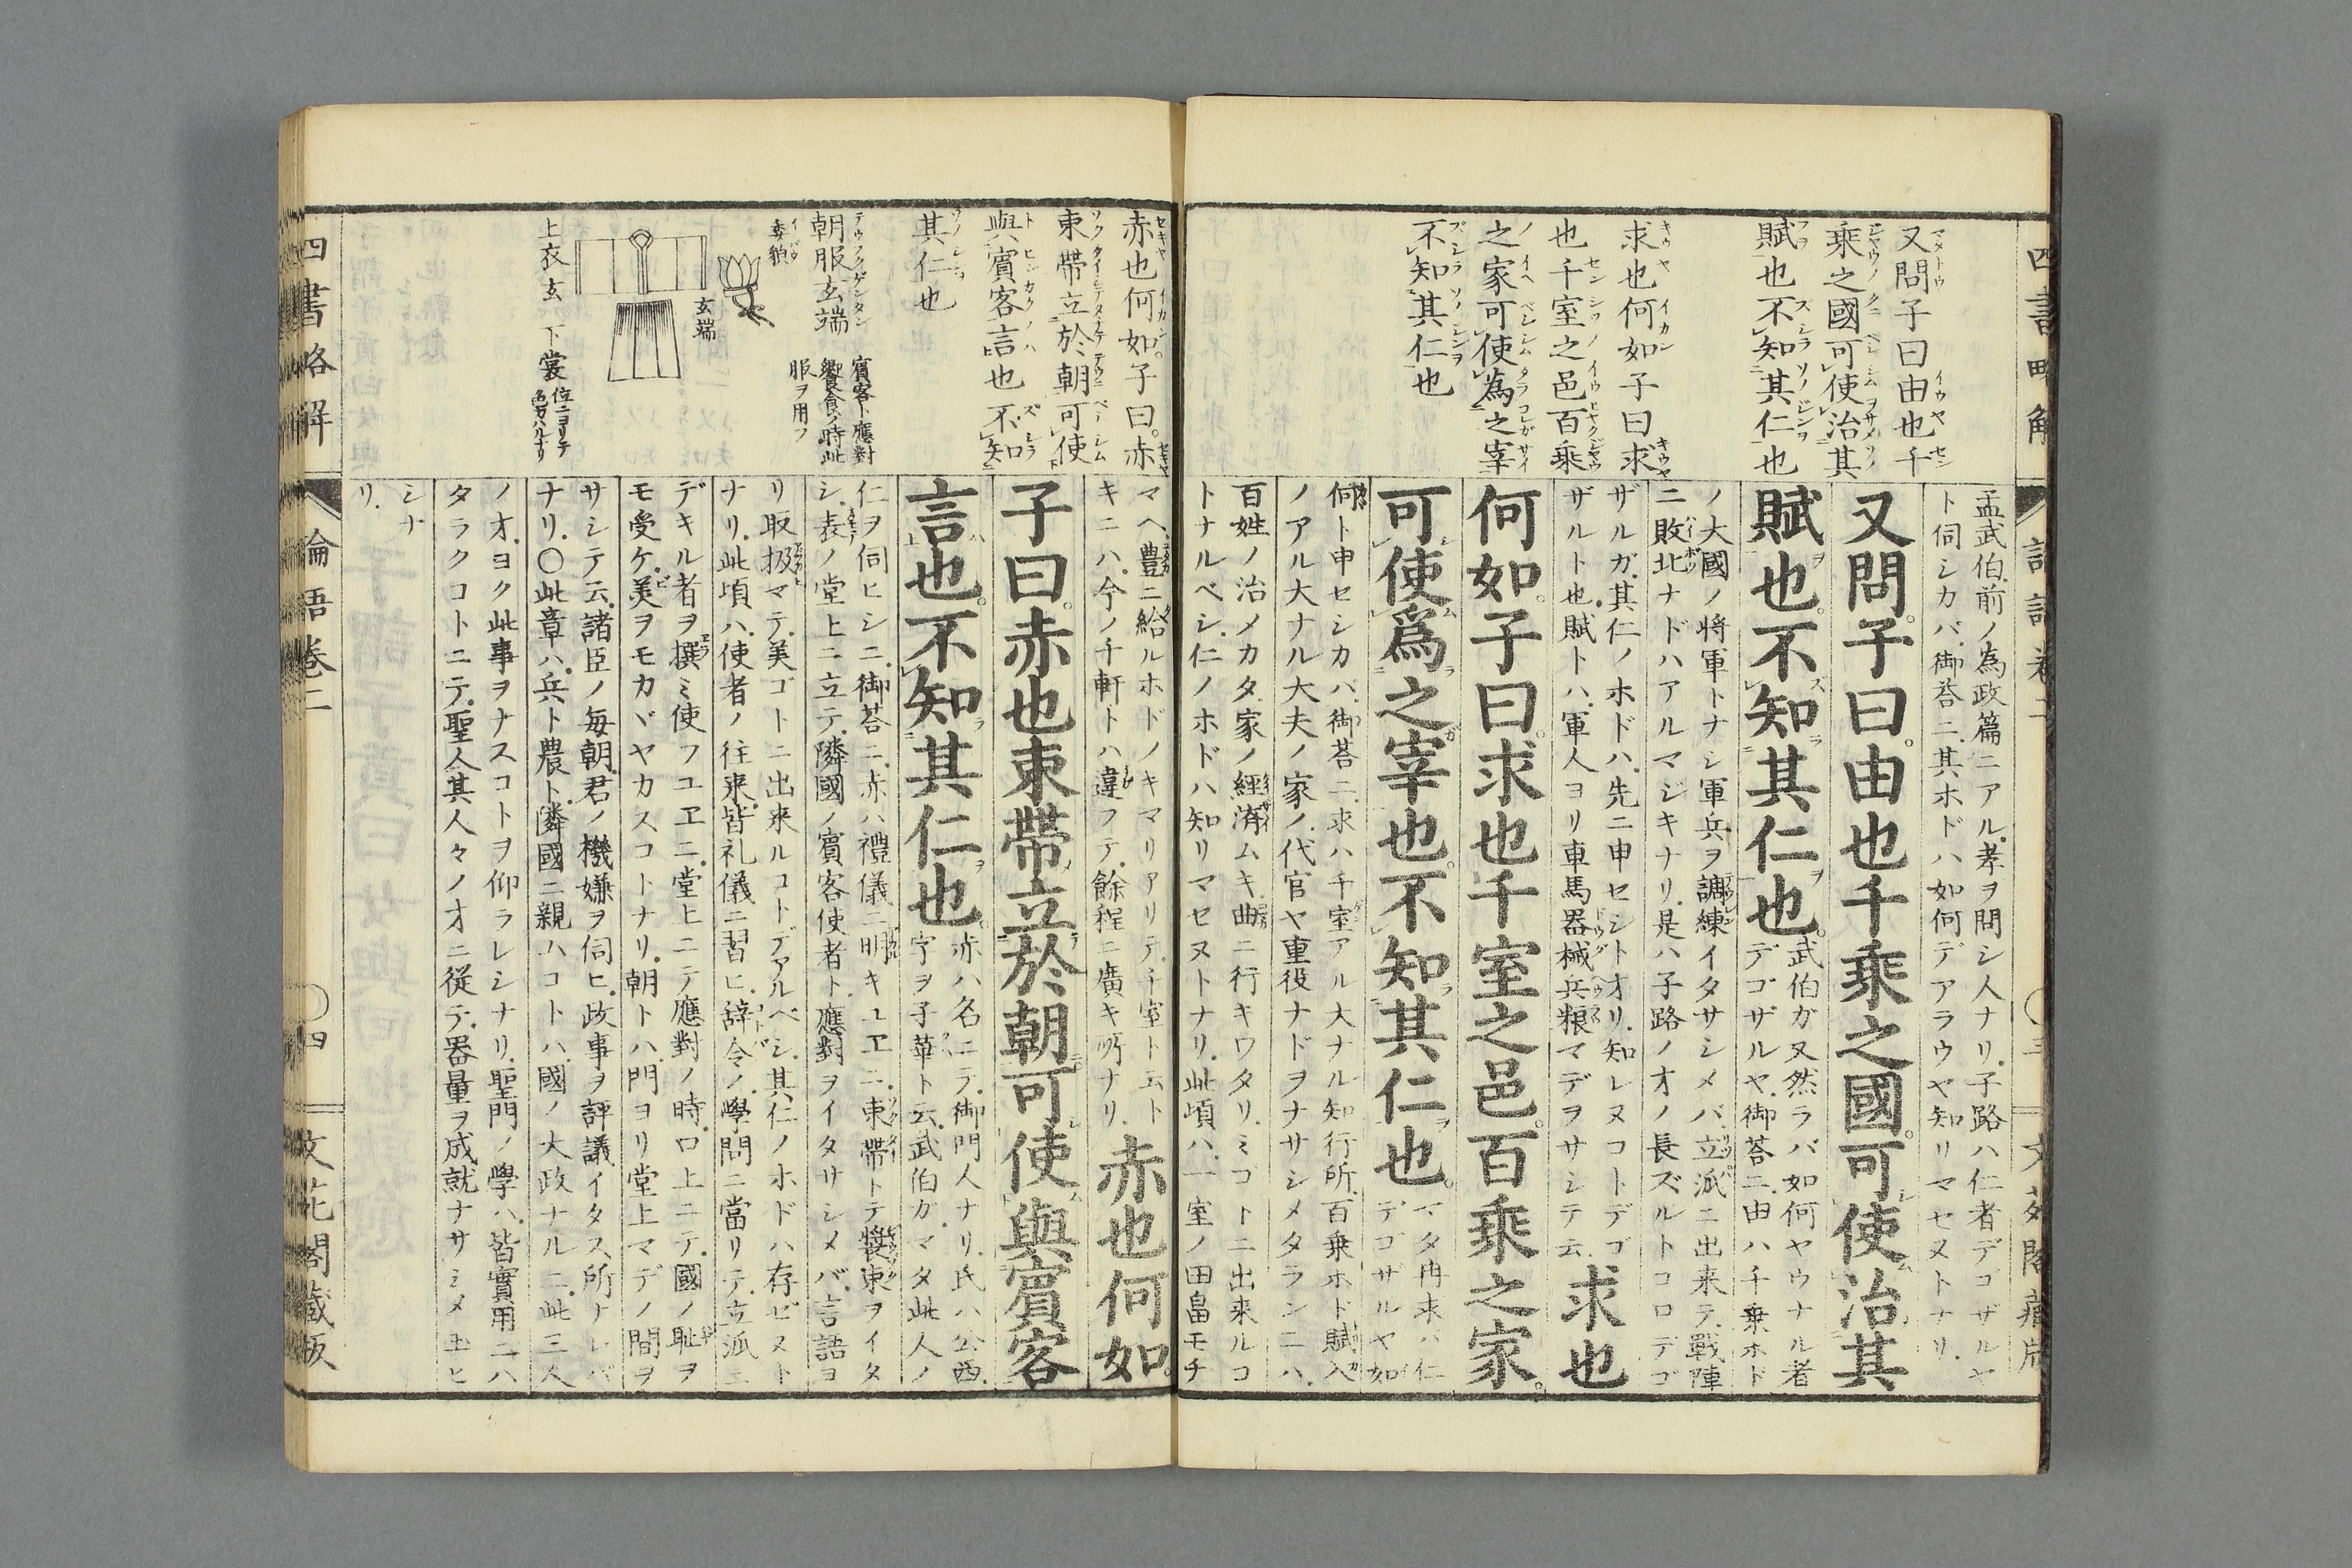 四書略解
論語卷二
〇三
文花閣藏版
又問子曰由也千
乘之國可使治其
賦也不知其仁也
求也何如子曰求
也千室之邑百乘
之家可使為之宰
不知其仁也
孟武伯前ノ為政篇ニアル孝ヲ問シ人ナリ子路ハ仁者デコザルヤ
ト伺シカバ御荅ニ其ホドハ如何デアラウヤ知リマセヌトナリ
又問子曰由也千乘之國可使治其
賦也不知其仁也
武伯ガ又然ラバ如何ヤウナル者
デゴザルヤ御荅ニ由ハ千乗ホド
ノ大國ノ将軍トナシ軍兵ヲ調練イタサシメバ立派ニ出来テ戰陣
ニ敗北ナドハアルマジキナリ是ハ子路ノオノ長ズルトコロデゴ
ザルガ其仁ノホドハ先ニ申セシトオリ知レヌコトデゴ
ザルト也賦トハ軍人ヨリ車馬器械兵粮マデヲサシテ云
求也
何如子曰求也千室之邑百乘之家
可使爲之宰也不知其仁也
マタ冉求ハ仁
デゴザルヤ如
何ト申セシカバ御荅ニ求ハ千室アル大ナル知行所百乗ホド賦入
ノアル大ナル大夫ノ家ノ代官ヤ重役ナドヲナサシメタランニハ
百姓ノ治メカタ家ノ經濟ムキ曲ニ行キワタリミゴトニ出来ルコ
トナルベシ仁ノホドハ知リマセヌトナリ此頃ハ一室ノ田畠モチ
赤也何如子曰赤
束帶立於朝可使
與賓客言也不知
其仁也
朝服玄端
賓客ト應對
饗食ノ時此
服ヲ用フ
委貌
玄端
上衣玄 下裳
位ニヨリテ
色カハルナリ
マヘ豊ニ給ルホドノキマリアリテ千室ト云ト
キニハ今ノ千軒トハ違フテ餘程ニ廣キ所ナリ
赤也何如
子曰赤也束帶立於朝可使與賓客
言也不知其仁也
赤ハ名ニテ御門人ナリ氏ハ公西
字ヲ子華ト云武伯ガマタ此人ノ
仁ヲ伺ヒシニ御荅ニ赤ハ禮儀ニ明キユヱニ束帶トテ裝束ヲイタ
シ表ノ堂上ニ立テ隣國ノ賓客使者ト應對ヲイタサシメバ言語ヨ
リ取扱マテ美ゴトニ出来ルコトデアルベシ其仁ノホドハ存ゼヌト
ナリ此頃ハ使者ノ往来皆礼儀ニ習ヒ辞令ノ學問ニ當リテ立派ニ
デキル者ヲ撰ミ使フユヱニ堂上ニテ應對ノ時口上ニテ國ノ耻ヲ
モ受ケ美ヲモカヾヤカスコトナリ朝トハ門ヨリ堂上マデノ間ヲ
サシテ云諸臣ノ毎朝君ノ機嫌ヲ伺ヒ政事ヲ評議イタス所ナレバ
ナリ〇此章ハ兵ト農ト隣國ニ親ムコトハ國ノ大政ナルニ此三人
ノオヨク此事ヲナスコトヲ仰ラレシナリ聖門ノ學ハ皆實用ニハ
タラクコトニテ聖人其人々ノオニ從テ器量ヲ成就ナサシメ玉ヒ
シナ
リ
四書略解
論語卷二
〇四
文花閣藏版